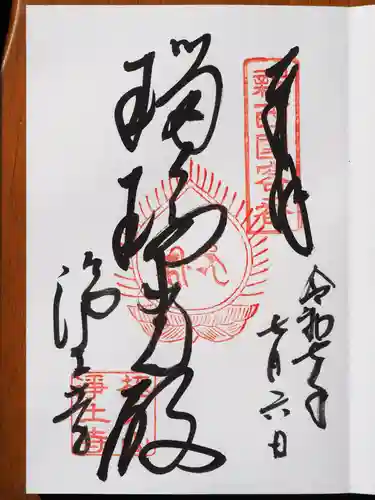 奉拝
新西国客番
令和七年
七月六日
瑠璃光殿
浄土寺
浄土寺